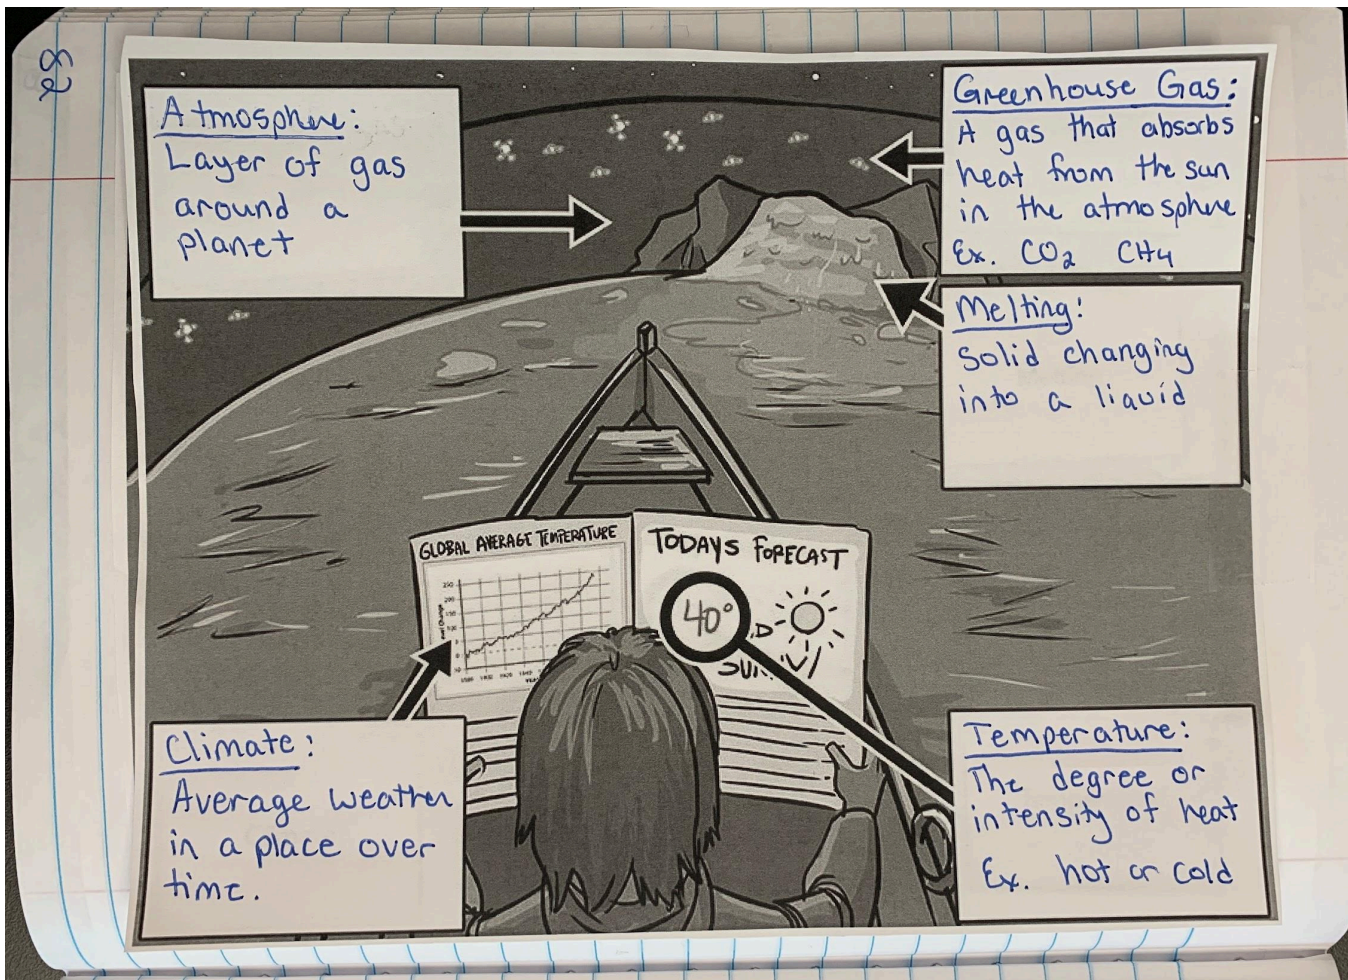 82
Atmosphere:
Layer of gas
around a
planet
Greenhouse Gas:
A gas that absorbs
heat from the sun
in the atmosphere
Ex. CO₂ CH₄
Melting:
Solid changing
into a liquid
GLOBAL AVERAGE TEMPERATURE
250
200
150
100
TODAYS FORECAST
40°
Climate:
Average weather
in a place over
time.
Temperature:
The degree or
intensity of heat
Ex. hot or cold